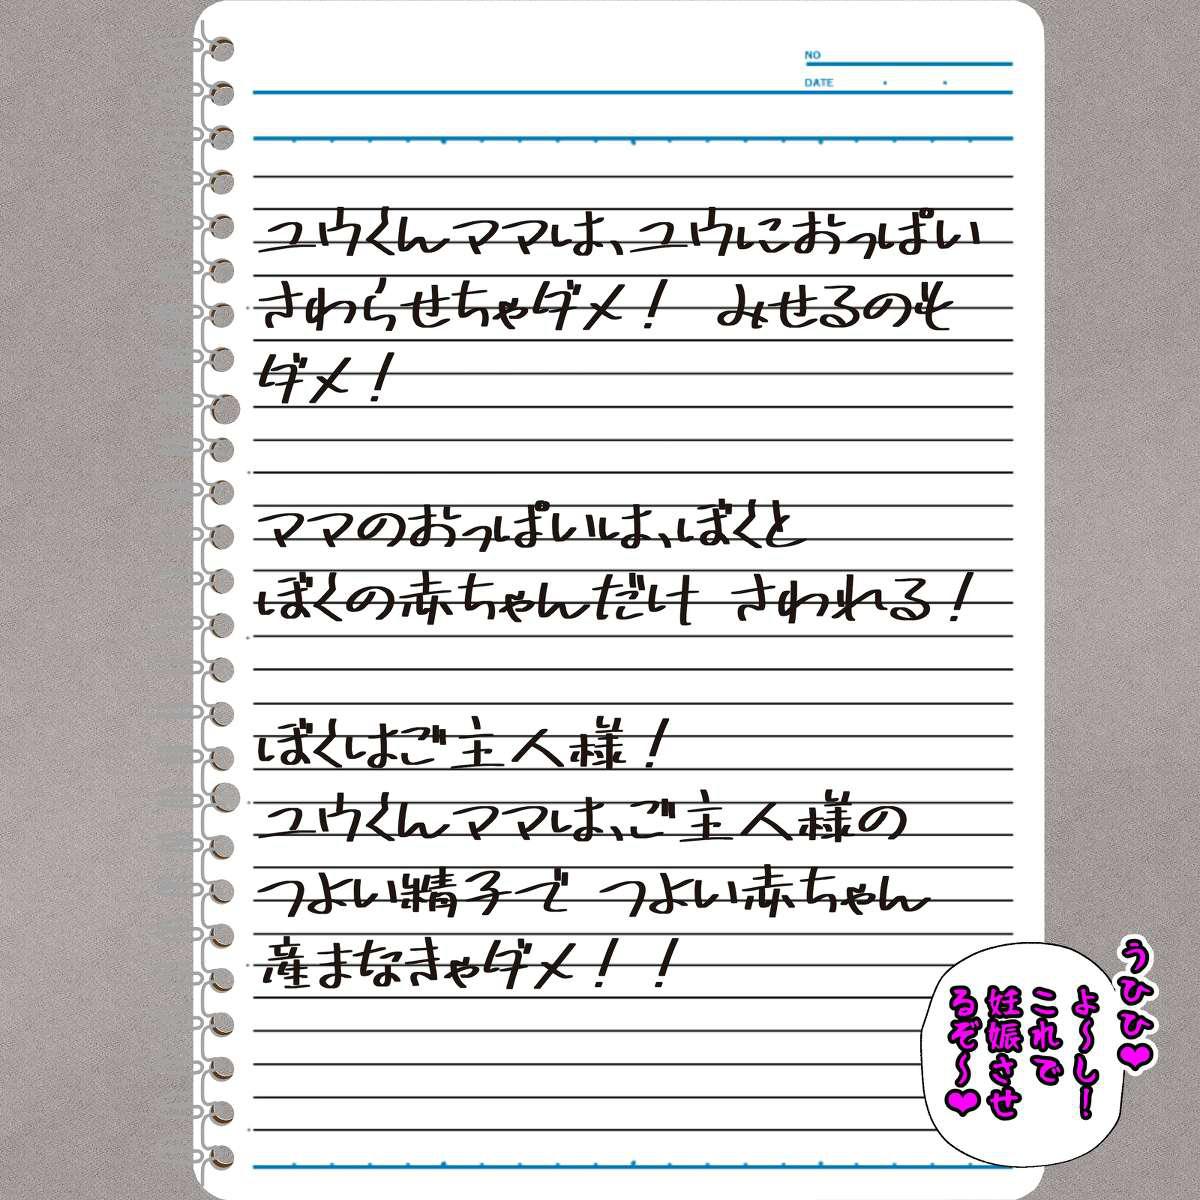 NO
DATE
ユウくんママは、ユウにおっぱい
さわらせちゃダメ！ みせるのも
ダメ！
ママのおっぱいは、ぼくと
ぼくの赤ちゃんだけ さわれる！
ぼくはご主人様！
ユウくんママは、ご主人様の
つよい精子で つよい赤ちゃん
産まなきゃダメ！！
うひひ♥
よ～し！
これで
妊娠させ
るぞ～♥